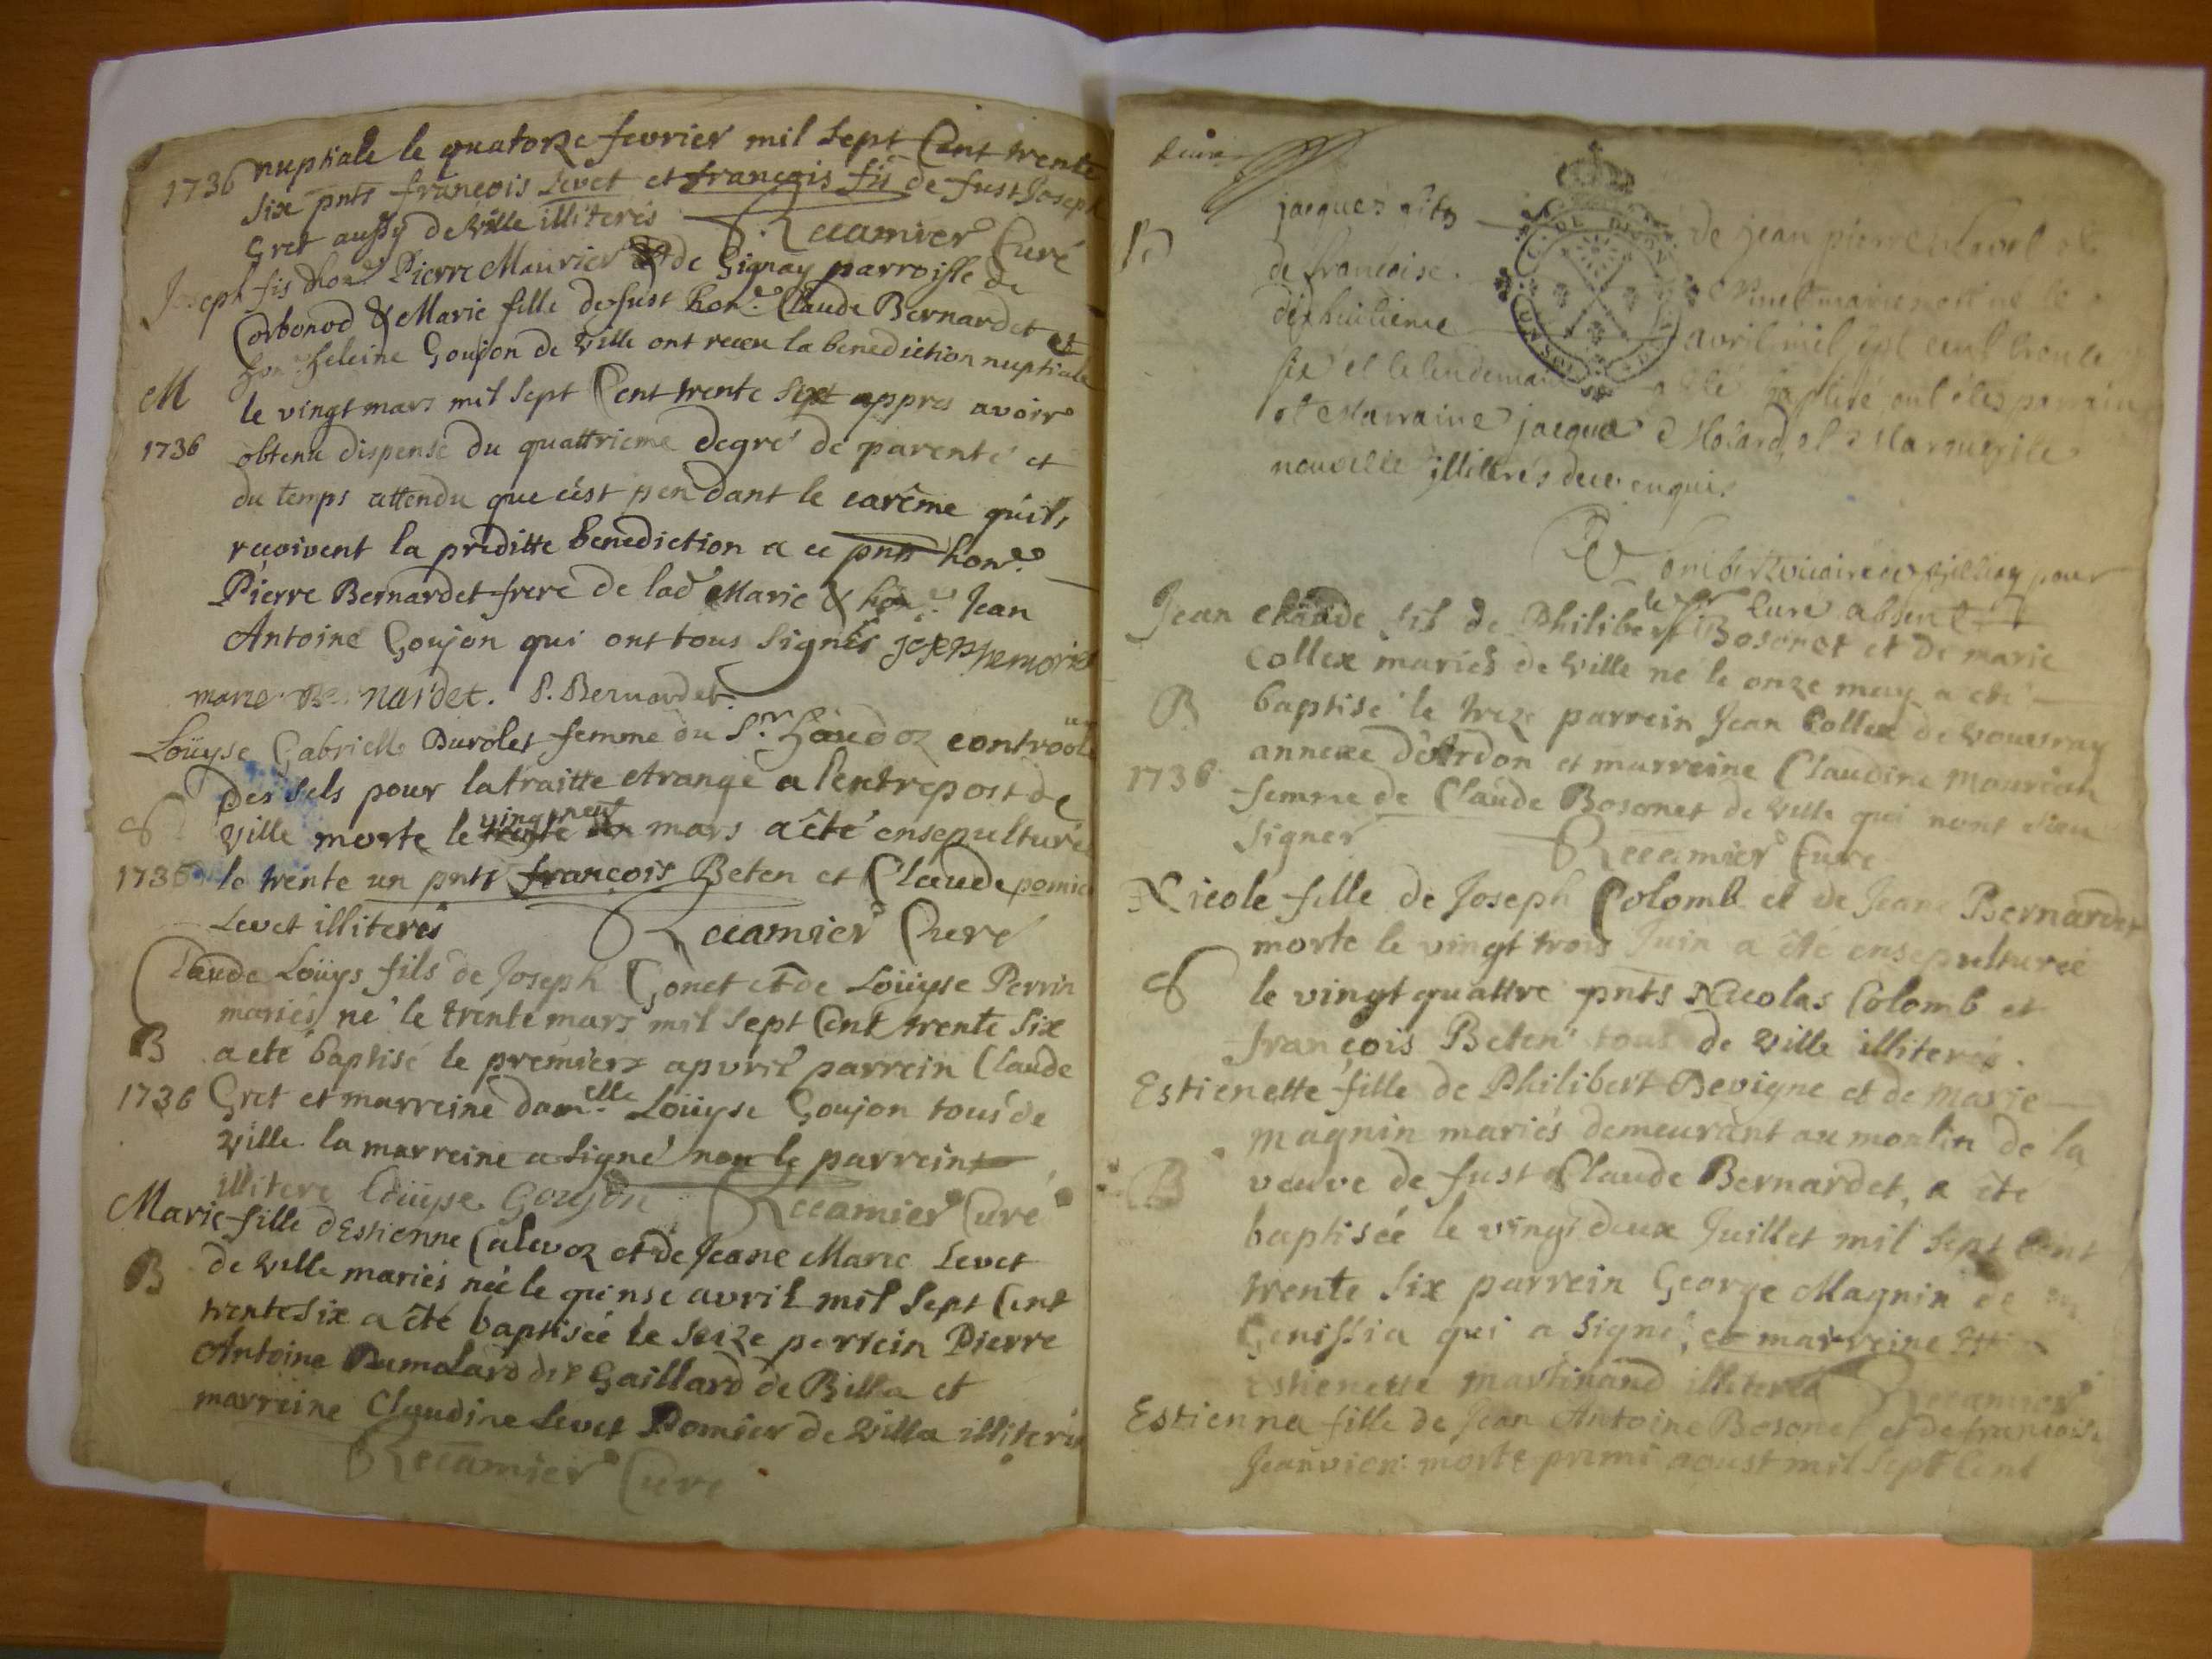 1736 nuptiale le quatorze fevrier mil sept Cent trente
six pnts francois Levet et francois fis de fust Joseph
Gret aussy de ville illiterés Recamier Curé
Joseph fis d'hon. Pierre Maurier de Gignay parroisse de
Corbonod & Marie fille de fust hon. Claude Bernardet et
hon. heleine Goujon de ville ont receu la benediction nuptiale
M
le vingt mars mil sept Cent trente sixt appres avoir
1736 obtenu dispense du quattrieme degré de parenté et
du temps attendu que c'est pendant le carême qu'ils
recoivent la preditte benediction a ce pnts hon.
Pierre Bernardet frere de lad Marie & hon. Jean
Antoine Goujon qui ont tous signés
marie nardet. P. Bernardet.
Loüyse Gabrielle Duroles femme du Sr.
des sels pour la traitte etrange a l'entrepost de
S ville morte le vingt neuf mars a été ensepulturée
1736 le trente un pnts francois Beten et Claude pomier
Levet illiterés Recamier Curé
Claude Loüys fils de Joseph Gonet et de Loüyse Perrin
mariés né le trente mars mil sept Cent trente six
B a eté baptisé le premier apvril parrein Claude
1736 Gret et marreine damelle Loüyse Goujon tous de
ville la marreine a signé non le parrein
illitere Loüyse Goujon Recamier Curé
Marie fille d'Estienne Calevoz et de Jeane Marie Levet
B de ville mariés née le quinse avril mil sept Cent
trente six a été baptisée le seize parrein Pierre
Antoine Dumolard dit Gaillard de Billa et
marreine Claudine Levet Pomier de Villa illiterés
Recamier Curé
jacques fils de jean pierre
de francoise.
dixhuitieme avril mil sept cent trente
six et le lendemain a été baptisé ont étés parrain
et Marraine jacque Molard et Marguerite
nouvelle illiterés de ce enquis
vicaire pour
le Sr Curé absent
Jean Claude fils de Philibert Bosonet et de marie
Collex mariés de ville né le onze may a eté
B baptisé le treze parrein Jean Collex de vouvray
annexe d'Ardon et marreine Claudine
1736 femme de Claude Bosonet de ville qui nont
signer Recamier Curé
Nicole fille de Joseph Colomb et de Jeane Bernardet
morte le vingt trois Juin a été ensepulturée
S le vingt quattre pnts Nicolas Colomb et
françois Beten tous de ville illiterés.
Estienette fille de Philibert Bevigne et de marie
magnin mariés demeurant au moulin de la
B veuve de fust Claude Bernardet, a ête
baptisée le vingt deux Juillet mil sept Cent
trente six parrein George Magnin de
Genissia qui a signé, et marreine
Estienette martinand illiterée Recamier
Estienna fille de Jean Antoine Bosonet et de francoise
Jeanvion morte premi aoust mil sept Cent